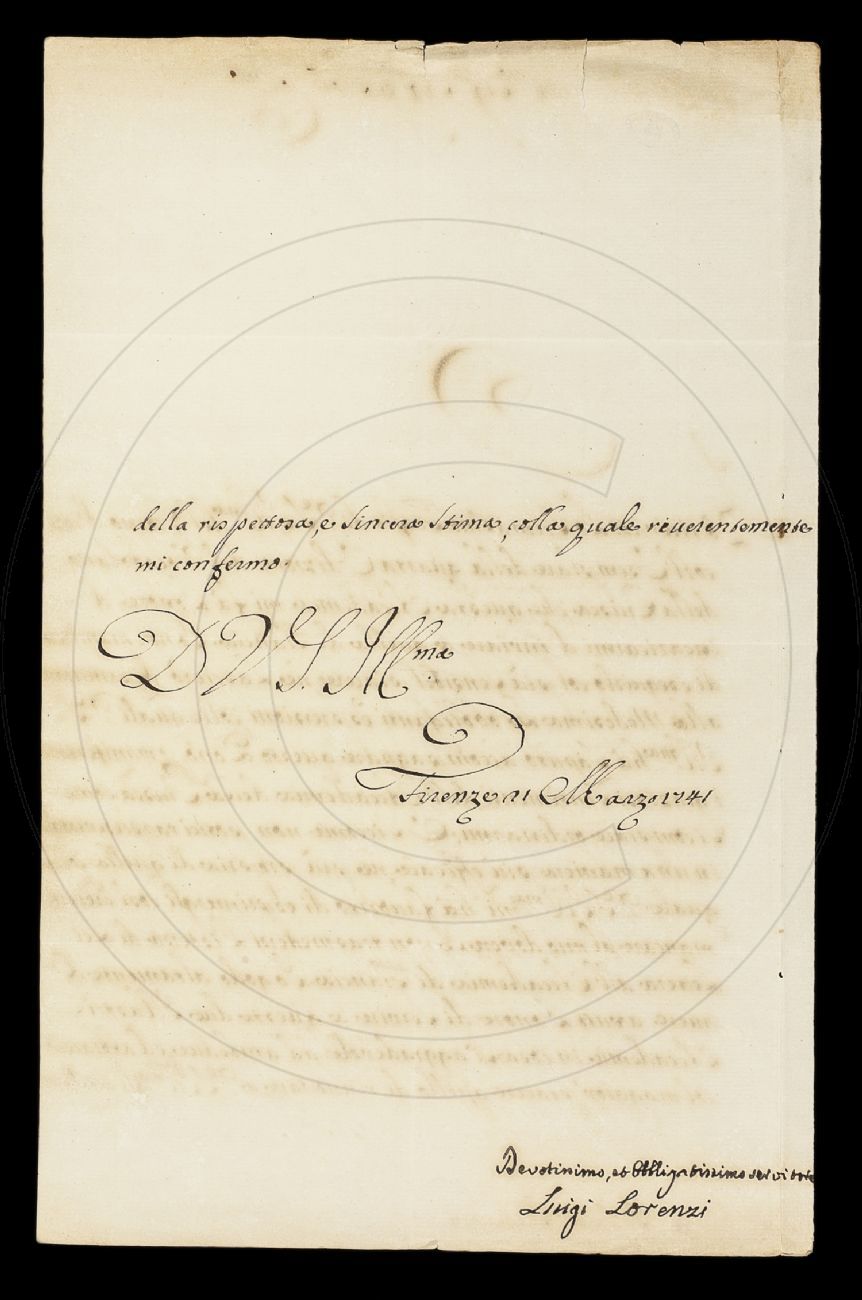 della rispettosa, e sincera stima, colla quale riverentemente
mi confermo.
D V. S. Ill.ma
Firenze 21 Marzo 1741
Devotissimo, et Obligatissimo servitore
Luigi Lorenzi